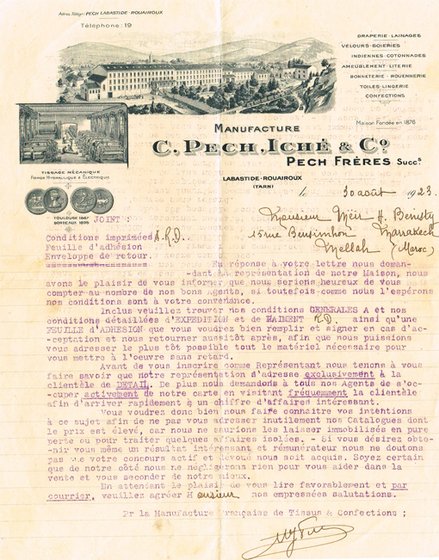 Adres. Télégr: PECH LABASTIDE-ROUAIROUX
Téléphone: 19
DRAPERIE - LAINAGES
VELOURS - SOIERIES
INDIENNES - COTONNADES
AMEUBLEMENT - LITERIE
BONNETERIE - ROUENNERIE
TOILES - LINGERIE
CONFECTIONS
Maison Fondée en 1876
MANUFACTURE
C. PECH, ICHÉ & Cº
PECH FRÈRES Succrs
LABASTIDE-ROUAIROUX
(TARN)
TISSAGE MÉCANIQUE
FORCE HYDRAULIQUE & ÉLECTRIQUE
TOULOUSE 1887
BORDEAUX 1895
le, 30 août 1923
Monsieur Méir H. Benisty
15 rue Bensimhon Marrakech
Mellah (Maroc)
JOINT:
Conditions imprimées A.R.D.
Feuille d'Adhésion
Enveloppe de retour.
En réponse à votre lettre nous deman-
-dant la représentation de notre Maison, nous
avons le plaisir de vous informer que nous serions heureux de vous
compter au nombre de nos bons Agents, si toutefois comme nous l'espérons
nos conditions sont à votre convenance.
Inclus veuillez trouver nos conditions GENERALES A et nos
conditions détaillées d'EXPEDITION et de PAIEMENT R.D. ainsi qu'une
FEUILLE d'ADHESION que vous voudrez bien remplir et signer en cas d'ac-
-ceptation et nous retourner aussitôt après, afin que nous puissions
vous adresser le plus tôt possible tout le matériel nécessaire pour
vous mettre à l'oeuvre sans retard.
Avant de vous inscrire comme Représentant nous tenons à vous
faire savoir que notre représentation s'adresse exclusivement à la
clientèle de DETAIL. De plus nous demandons à tous nos Agents de s'oc-
-cuper activement de notre carte en visitant fréquemment la clientèle
afin d'arriver rapidement à un chiffre d'affaires intéressant.
Vous voudrez donc bien nous faire connaitre vos intentions
à ce sujet afin de ne pas vous adresser inutilement nos Catalogues dont
le prix est élevé, car nous ne saurions les laisser immobilisés en pure
perte ou pour traiter quelques affaires isolées. - Si vous désirez obte-
-nir vous même un résultat intéressant et rémunérateur nous ne doutons
pas que votre concours actif et dévoué nous soit acquis. Soyez certain
que de notre côté nous ne négligerons rien pour vous aider dans la
vente et vous seconder de notre mieux.
En attendant le plaisir de vous lire favorablement et par
courrier, veuillez agréer Monsieur nos empressées salutations.
Pr la Manufacture Française de Tissus & Confections;